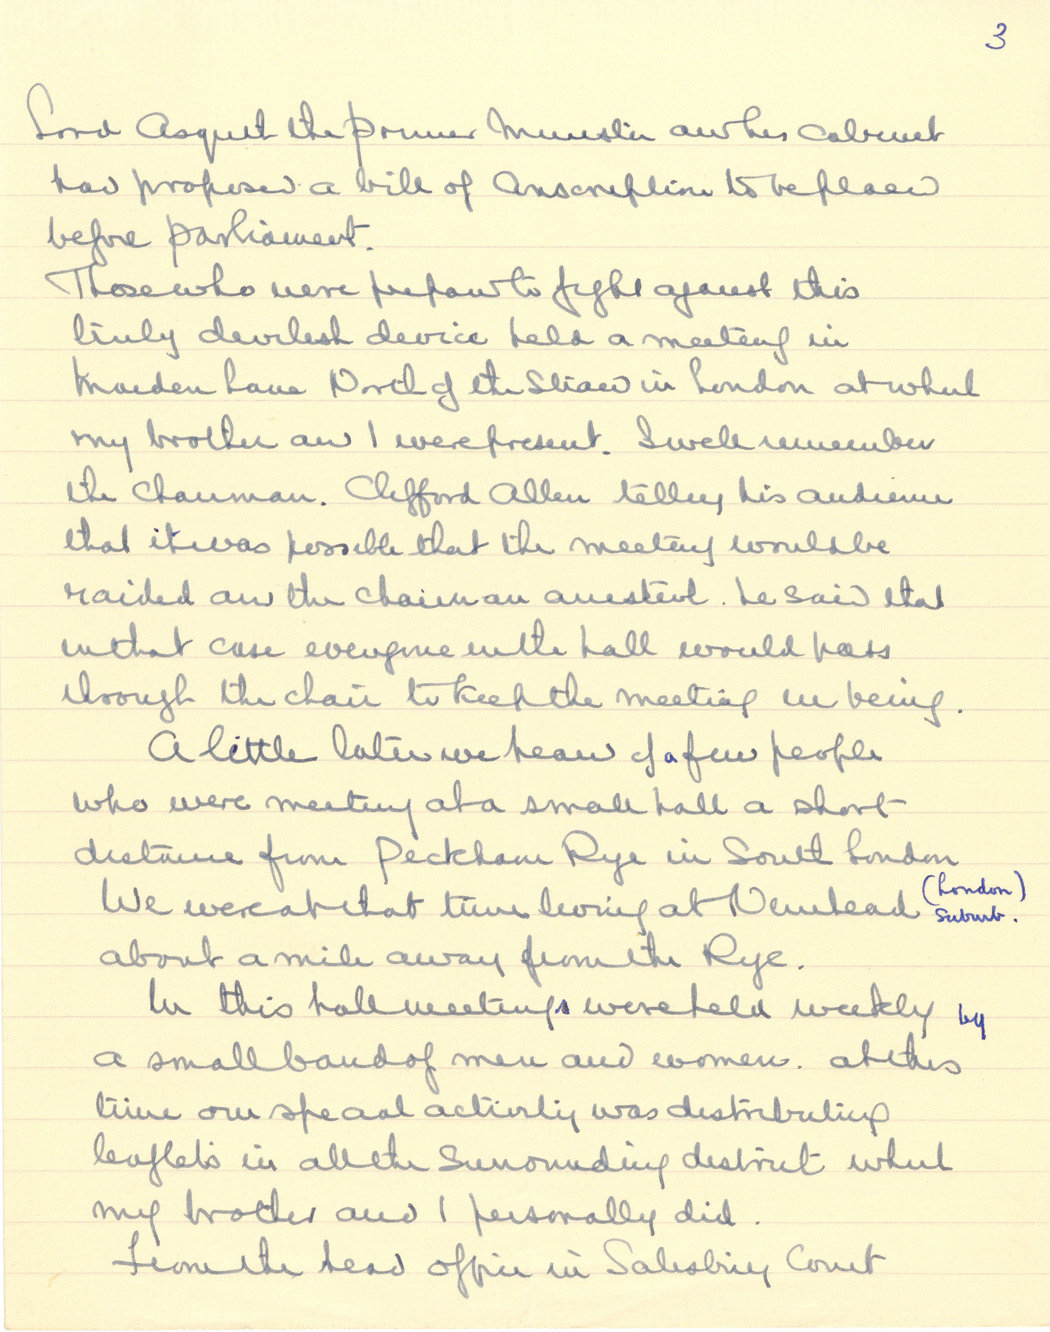 3
Lord Asquit the primer Minister and his cabinet
had proposed a bill of Conscription to be placed
before parliament.
Those who were prepard to fight against this
truly devilish device held a meeting in
Maiden Lane North of the Strand in London at which
my brother and I were present. I well remember
the chairman. Clifford Allen telling his audience
that it was possible that the meeting would be
raided and the chairman arrested. he said that
in that case everyone in the hall would pass
through the chair to keep the meeting in being.
A little later we heard of a few people
who were meeting at a small hall a short
distance from Peckham Rye in South London
We were at that time living at Nunhead (London)
suburb.
about a mile away from the Rye.
In this hall meetings were held weekly by
a small band of men and women. at this
time our special activity was distributing
leaflets in all the surrounding district which
my brother and I personally did.
From the head office in Salisbury Court